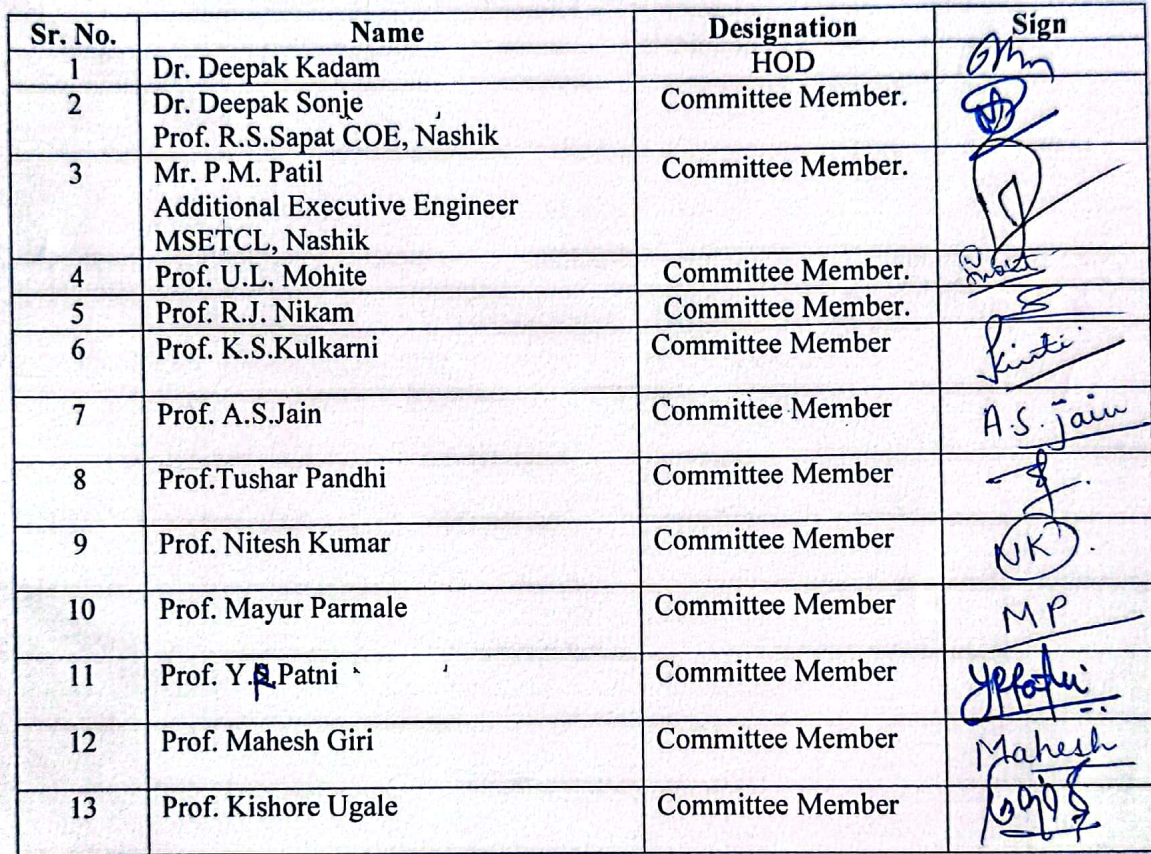 Sr. No. Name Designation Sign
1 Dr. Deepak Kadam HOD
2 Dr. Deepak Sonje Committee Member.
Prof. R.S.Sapat COE, Nashik
3 Mr. P.M. Patil Committee Member.
Additional Executive Engineer
MSETCL, Nashik
4 Prof. U.L. Mohite Committee Member.
5 Prof. R.J. Nikam Committee Member.
6 Prof. K.S.Kulkarni Committee Member
7 Prof. A.S.Jain Committee Member A.S. Jain
8 Prof.Tushar Pandhi Committee Member
9 Prof. Nitesh Kumar Committee Member NK
10 Prof. Mayur Parmale Committee Member MP
11 Prof. Y.P.Patni Committee Member
12 Prof. Mahesh Giri Committee Member Mahesh
13 Prof. Kishore Ugale Committee Member